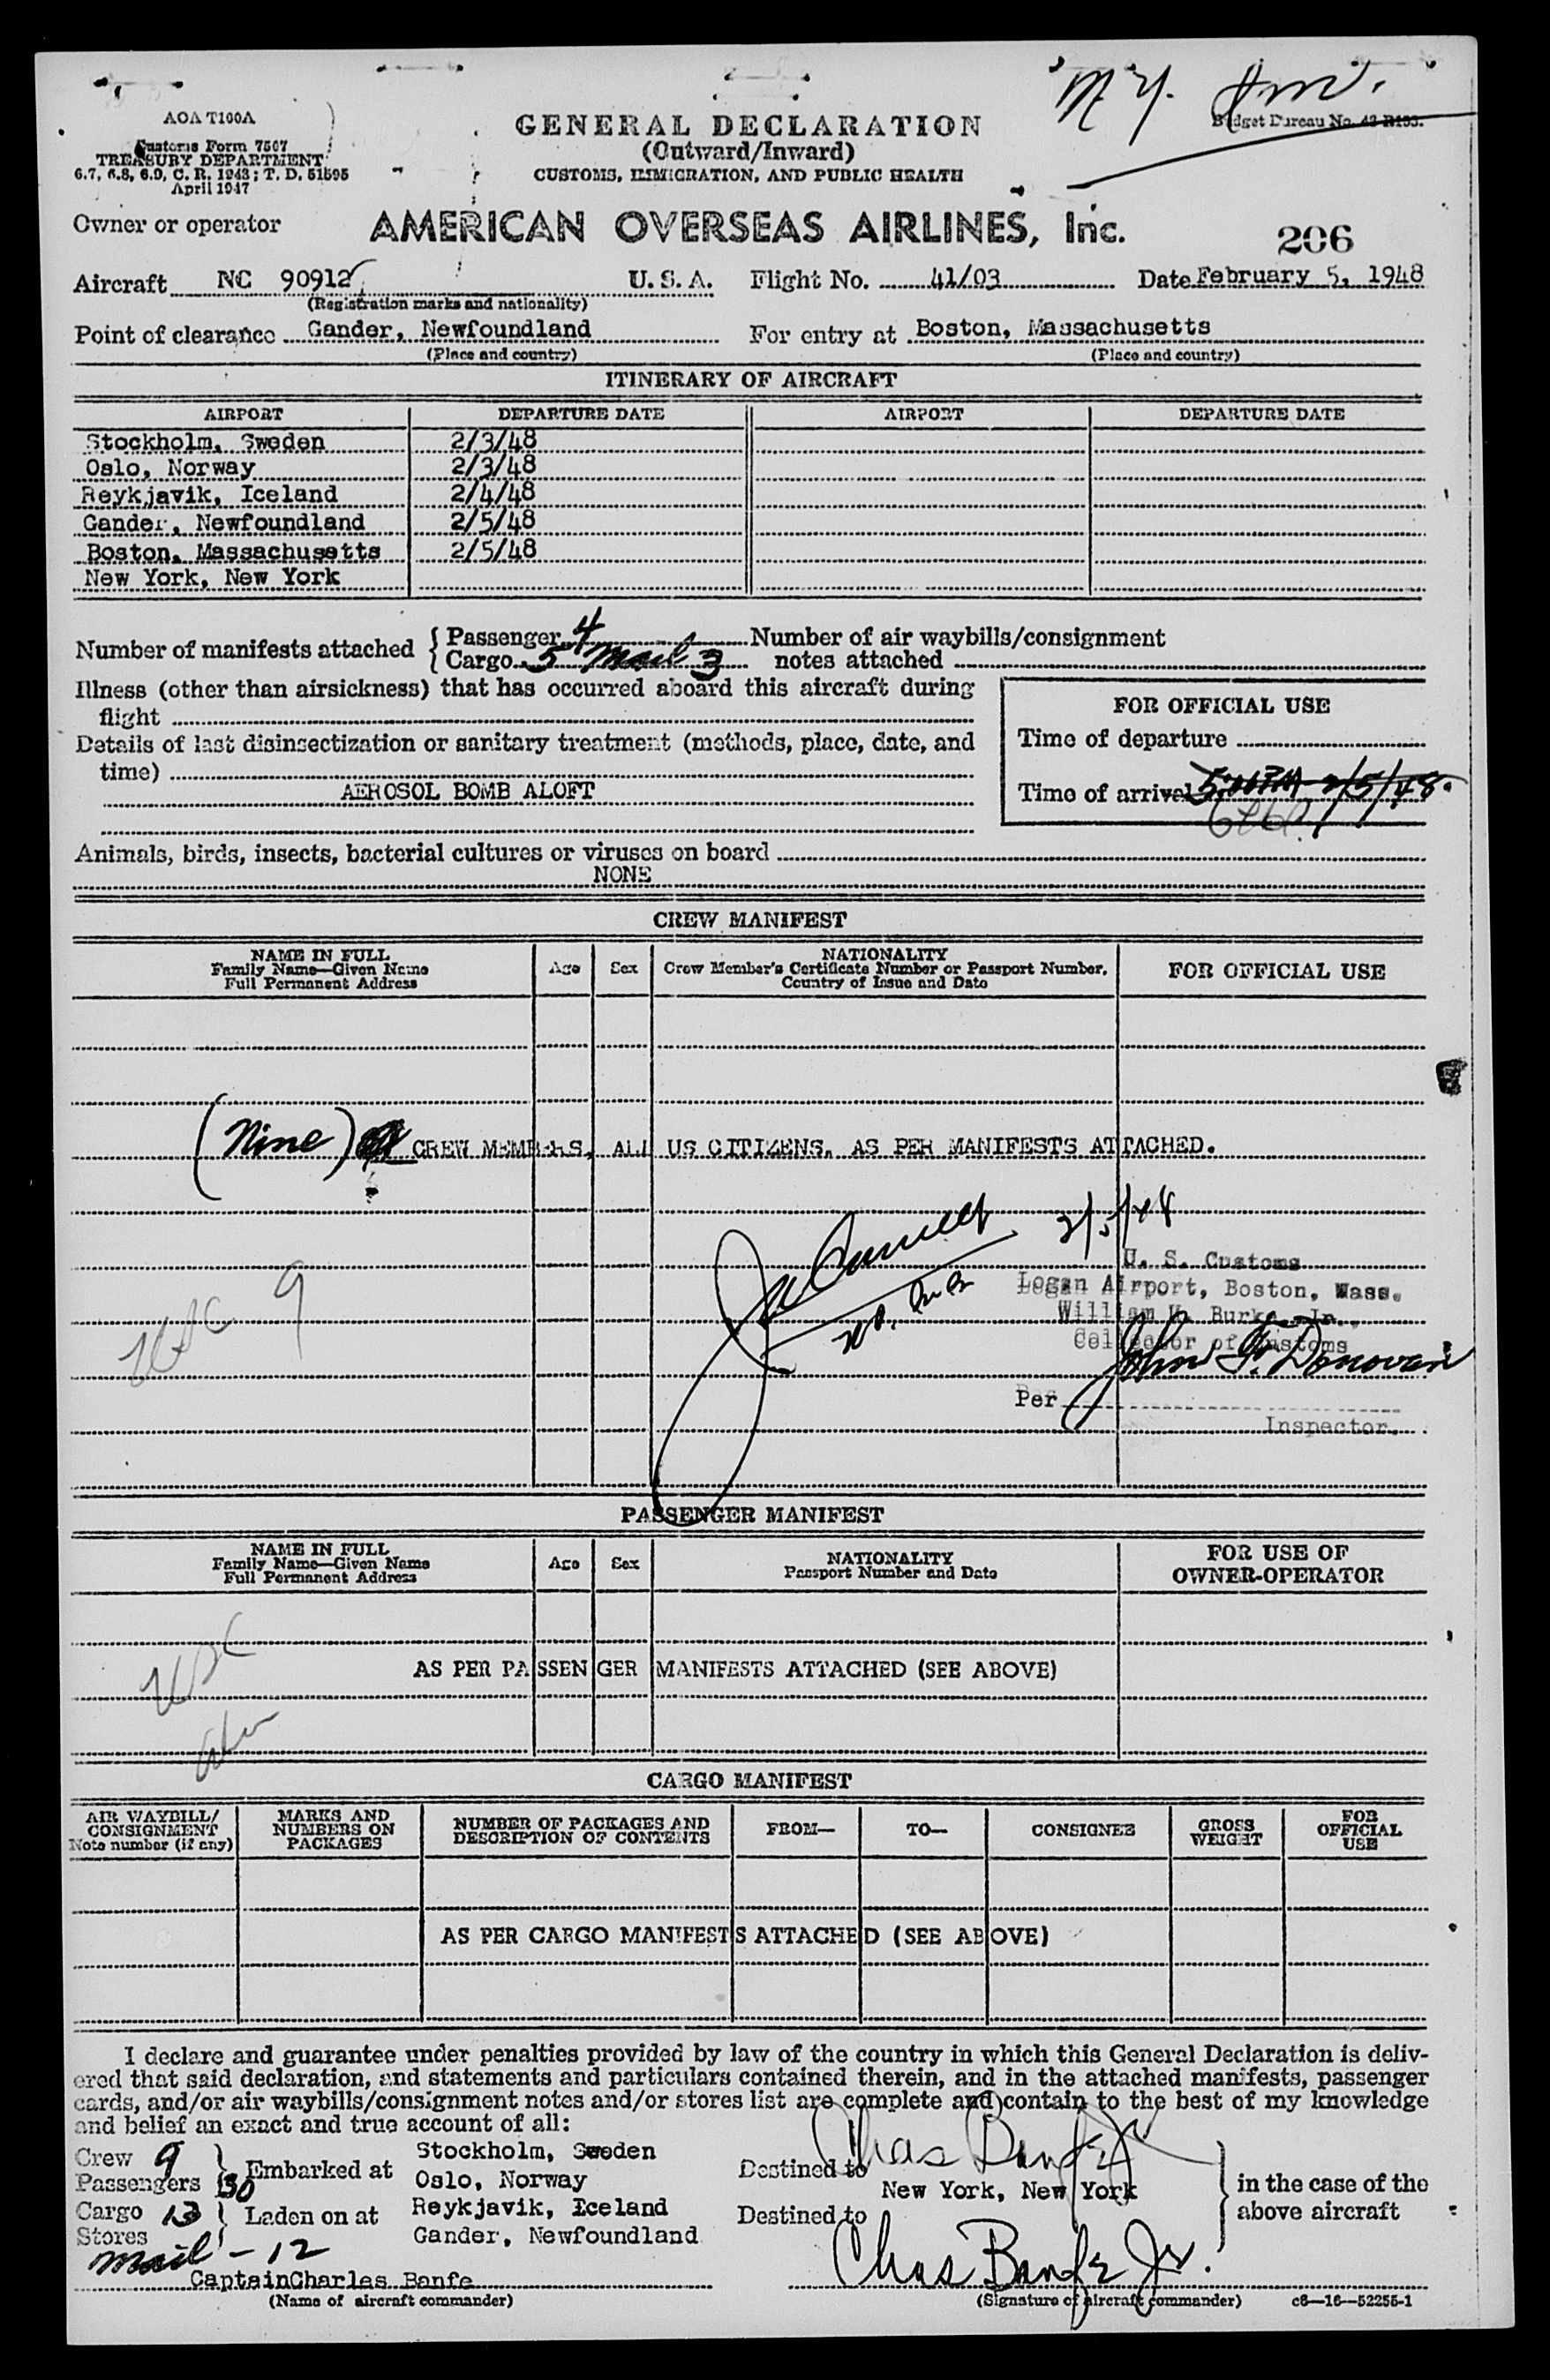 N.Y.
AOA T100A
Customs Form 7507
TREASURY DEPARTMENT
6.7, 6.8, 6.9, C. R. 1943; T. D. 51595
April 1947
GENERAL DECLARATION
(Outward/Inward)
CUSTOMS, IMMIGRATION, AND PUBLIC HEALTH
Budget Bureau No.
Owner or operator AMERICAN OVERSEAS AIRLINES, Inc. 206
Aircraft NC 90912 U. S. A. Flight No. 41/03 Date February 5, 1948
(Registration marks and nationality)
Point of clearance Gander, Newfoundland For entry at Boston, Massachusetts
(Place and country) (Place and country)
ITINERARY OF AIRCRAFT
AIRPORT DEPARTURE DATE AIRPORT DEPARTURE DATE
Stockholm, Sweden 2/3/48
Oslo, Norway 2/3/48
Reykjavik, Iceland 2/4/48
Gander, Newfoundland 2/5/48
Boston, Massachusetts 2/5/48
New York, New York
Number of manifests attached { Passenger 4 Number of air waybills/consignment
Cargo 5 Mail 3 notes attached
Illness (other than airsickness) that has occurred aboard this aircraft during
flight
Details of last disinsectization or sanitary treatment (methods, place, date, and
time)
AEROSOL BOMB ALOFT
FOR OFFICIAL USE
Time of departure
Time of arrival 2/5/48.
Animals, birds, insects, bacterial cultures or viruses on board
NONE
CREW MANIFEST
NAME IN FULL
Family Name—Given Name
Full Permanent Address
Age Sex
NATIONALITY
Crew Member's Certificate Number or Passport Number,
Country of Issue and Date
FOR OFFICIAL USE
(Nine) CREW MEMBERS, ALL US CITIZENS, AS PER MANIFESTS ATTACHED.
2/5/48
U. S. Customs
Logan Airport, Boston, Mass.
William Burke, Jr.,
Collector of Customs
USC 9
John F. Donovan
Per
Inspector.
PASSENGER MANIFEST
NAME IN FULL
Family Name—Given Name
Full Permanent Address
Age Sex
NATIONALITY
Passport Number and Date
FOR USE OF
OWNER-OPERATOR
USC
AS PER PASSENGER MANIFESTS ATTACHED (SEE ABOVE)
CARGO MANIFEST
AIR WAYBILL/
CONSIGNMENT
Note number (if any)
MARKS AND
NUMBERS ON
PACKAGES
NUMBER OF PACKAGES AND
DESCRIPTION OF CONTENTS
FROM— TO— CONSIGNEE
GROSS
WEIGHT
FOR
OFFICIAL
USE
AS PER CARGO MANIFESTS ATTACHED (SEE ABOVE)
I declare and guarantee under penalties provided by law of the country in which this General Declaration is deliv-
ered that said declaration, and statements and particulars contained therein, and in the attached manifests, passenger
cards, and/or air waybills/consignment notes and/or stores list are complete and contain to the best of my knowledge
and belief an exact and true account of all:
Crew 9
Passengers 30
Embarked at
Cargo 13
Stores
Laden on at
mail - 12
Stockholm, Sweden
Oslo, Norway
Reykjavik, Iceland
Gander, Newfoundland
Chas Banfe Jr
Destined to
New York, New York
Destined to
in the case of the
above aircraft
Captain Charles Banfe
(Name of aircraft commander)
Chas Banfe Jr.
(Signature of aircraft commander) c6—16—52255-1